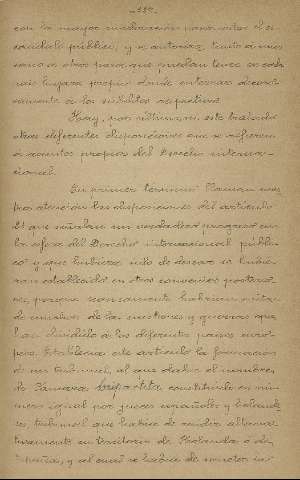 -112-
con la mayor moderación para evitar el es-
cándalo público, y se autoriza, tanto a unos
como a otros para que puedan tener en cada
país lugares propios donde enterrar decoro-
samente a los súbditos respectivos.
Hay, por último, en este tratado
otras diferentes disposiciones que se refieren
a asuntos propios del Derecho interna-
cional.
En primer término llaman nues-
tra atención las disposiciones del artículo
21 que señalan un verdadero progreso en
la esfera del Derecho internacional públi-
co y que hubiera sido de desear se hubie-
ran establecido en otros convenios posterio-
res, porque seguramente habrían evita-
do muchas de las cuestiones y guerras que
han dividido a los diferentes países euro-
peos. Establece este artículo la formación
de un tribunal, al que daba el nombre
de Cámara tripartita, constituido en nú-
mero igual por jueces españoles y holande-
ses, tribunal que había de residir alterna-
tivamente en territorio de Holanda o de
España, y al cual se habían de someter